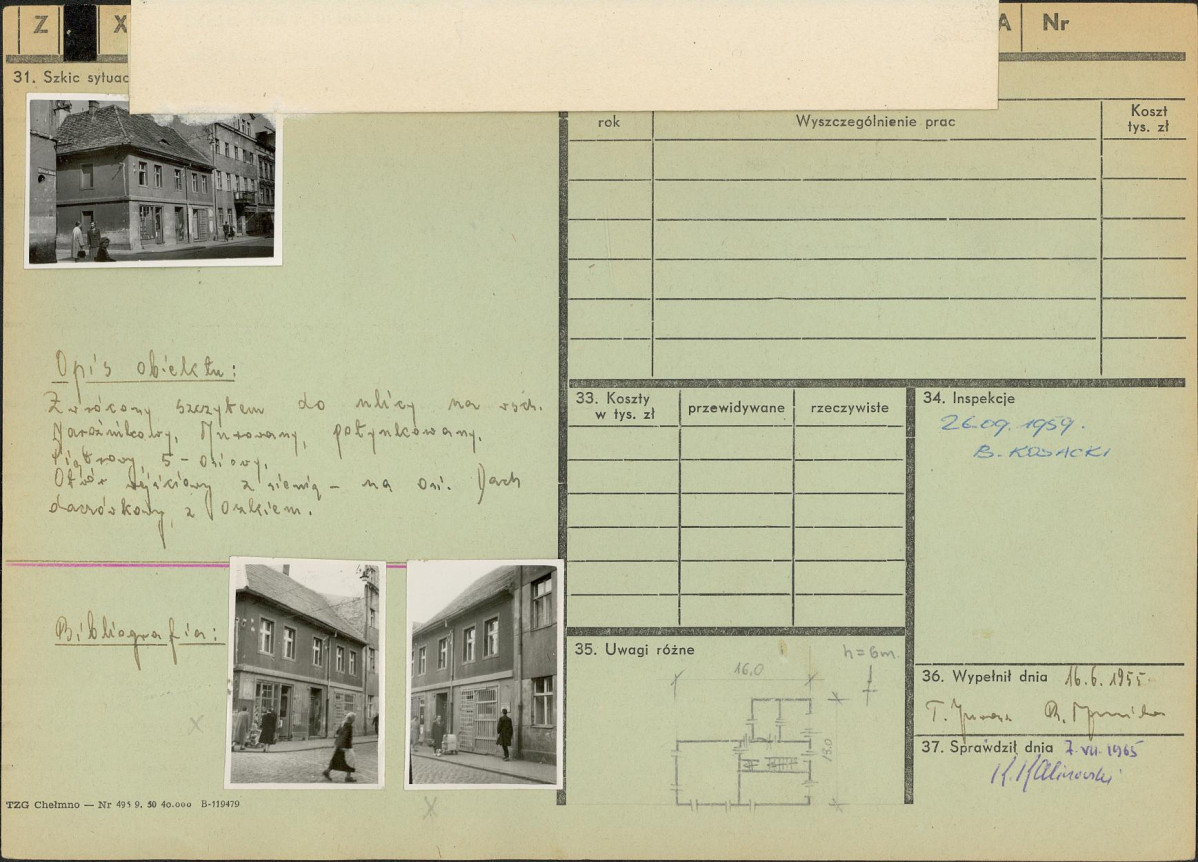 Z X A Nr
31. Szkic sytuac
rok Wyszczególnienie prac Koszt
tys. zł
Opis obiektu:
Zwrócony szczytem do ulicy na wsch.
Narożnikowy, Murowany, potynkowany.
Piętrowy, 5-osiowy.
Otwór wejściowy z sienią - na osi. Dach
dachówkowy, z
Bibliografia:
33. Koszty
w tys. zł
przewidywane rzeczywiste
34. Inspekcje
26.09.1959.
B. KOSACKI
35. Uwagi różne
h=6m
16,0
13.0
36. Wypełnił dnia 16.6.1955
T.
37. Sprawdził dnia 7.VII.1965
K. Kalinowski
TZG Chełmno — Nr 495 9. 50 40.000 B-119479